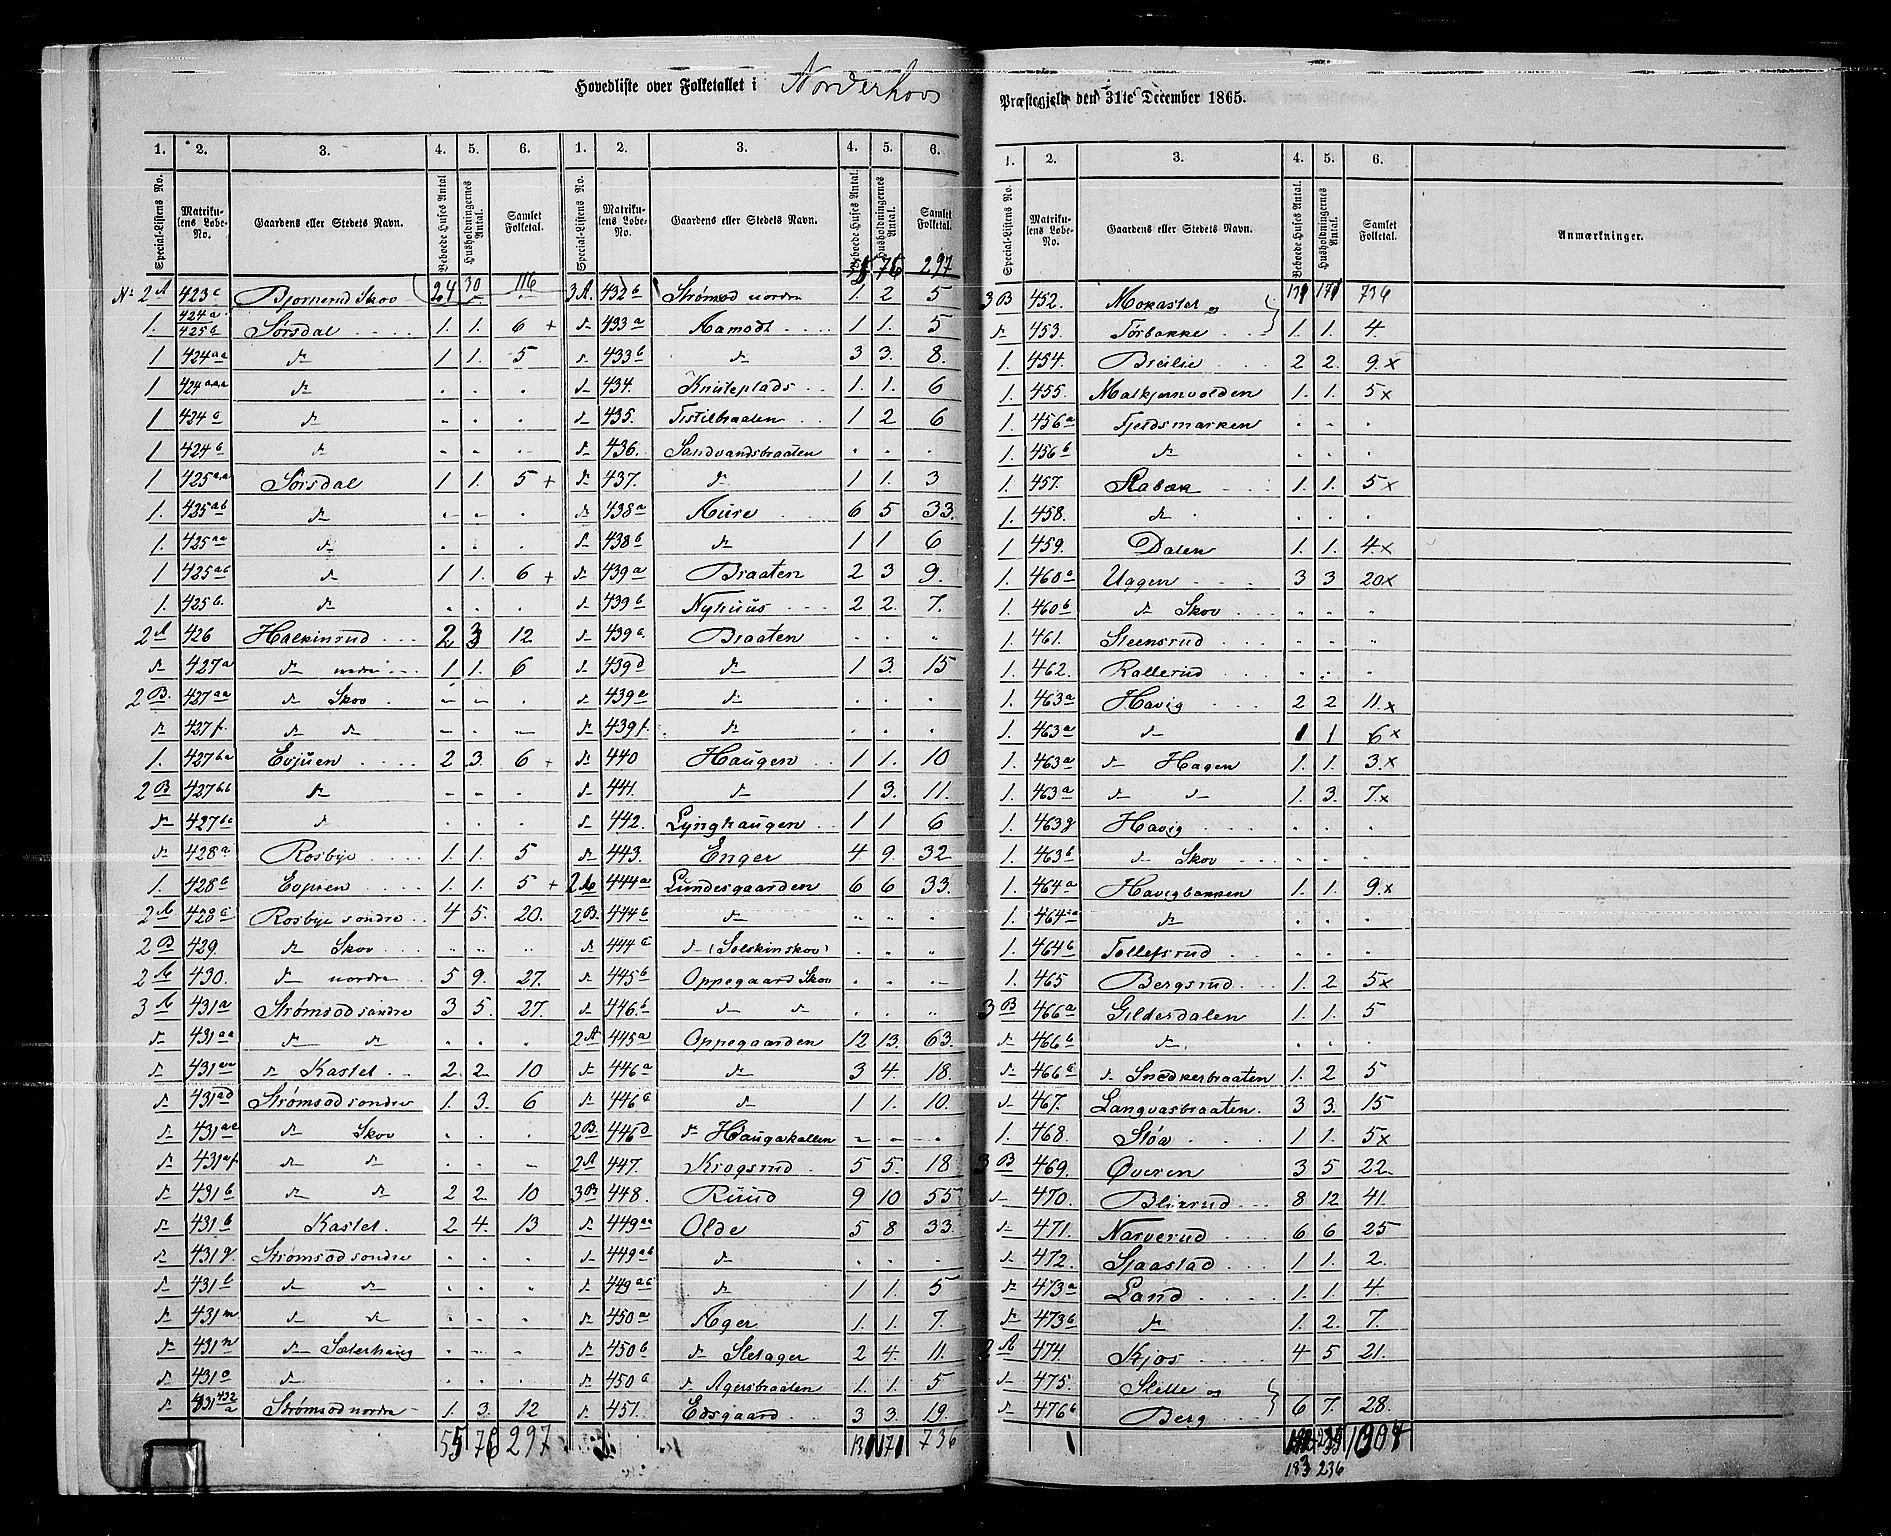 Hovedliste over Folketallet i Norderhovs Præstegjeld den 31te December 1865.
1. 2. 3. 4. 5. 6. 1. 2. 3. 4. 5. 6.
Special-Listens No. Matrikulens Løbe-No. Gaardens eller Stedets Navn. Beboede Huses Antal Husholdningernes Antal. Samlet Folketal. Special-Listens No. Matrikulens Løbe-No. Gaardens eller Stedets Navn. Beboede Huses Antal. Husholdningernes Antal. Samlet Folketal.
76 297
No 2 A 423c Bjørnerud Skov 24 30 116 3 A. 432b Strømsod nordre 1. 2 5
1. 424a 425b Sørsdal 1. 1. 6 + d 433a Aamodt 1 1. 5
1 424aa d 1 1. 5 d. 433b d 3 3. 8.
1 424aaa d . . . d 434. Knuteplads 1. 1. 6
1 424c d . . . d 435. Tistilbraaten 1 2 6
1 424b d . . . d 436. Sandvandsbraaten . . .
1 425aa Sørsdal 1 1. 5 + d 437. d 1 1. 3
1. 425ab d . . . d 438a Aure 6 5 33.
1. 425aa d . . . d 438b d 1 1 6
1 425ab d 1 1. 6 + d 439a Braaten 2 3 9.
1. 425b. d . . . d 439b Nyhuus 2 2. 7.
2 A 426 Halkinrud 2 3 12 d 439c. Braaten . . .
d 427a d nordre 1. 1. 6 d 439d d 1 3. 15
2 B. 427aa d Skov . . . d 439e d . . .
d 427f. d d . . . d 439f. d . . .
1. 427ba Evjuen 2 3. 6 + d 440 Haugen 1 1. 10
2 B 427bb d . . . d 441. d 1 3. 11.
d 427bc d . . . d 442. Lynghaugen 1 1 6
d 428a Rosbye 1. 1. 5 d 443. Enger 4 9. 32
1. 428b Evjuen 1. 1. 5 + 2 A 444a Lundesgaarden 6 6 33.
2 A 428c Rosbye søndre 4 5. 20. 2 B. 444b d . . .
2 B 429. d Skov . . . d 444c d (Solskinskov) . . .
2 A 430. d nordre 5 9. 27. d 445b Oppegaard Skov . . .
3 A 431a Strømsod søndre 3 5. 27. d 446.b d d . . .
d 431aa d d . . . 2 A 445a Oppegaarden 12 13. 63.
d. 431aaa d Kastet 2. 2. 10 d 446a d 3 4. 18.
d 431ad Strømsod søndre 1. 3. 6 d 446c d 1 1. 10.
d 431ae d Skov . . . 2 B. 446d d Haugakallen . . .
d 431af. d d . . . 2 A 447. Krogsrud 5 5. 18
d 431b d d 2 2. 10 3 B 448. Ruud 9 10 55.
d 431b Kastet. 2 4. 13 d 449aa Olde 5 8 33.
d 431g. Strømsod søndre . . . d 449ab d . . .
d 431l d d . . . d 449ac d 1 1. 5
d 431m d d . . . d 450a Ager 1. 1. 7.
d 431n d Sæterhaug . . . d 450b d Sletager 2 4. 11.
d 431o d . . . d 450c d Agersbraaten 1. 1. 5
d 431 432 a Strømsod nordre 1. 3. 12 d 451. Edsgaard 3 3. 19.
55 76 297 131 171 736
1. 2. 3. 4. 5. 6.
Special-Listens No. Matrikulens Løbe-No. Gaardens eller Stedets Navn. Beboede Huses Antal. Husholdningernes Antal. Samlet Folketal. Anmærkninger.
131 171 736
3 B 452. Mokastet og
d 453. Torbakke 1. 1. 4.
1. 454. Brelie 2 2. 9. x
1. 455. Malkjernvolden 1. 1. 5 x
1. 456a Tjerdsmarken . . .
1. 456b d . . .
1. 457. Rabæk 1. 1. 5 x
1. 458. d . . .
1 459. Dalen 1. 1. 4. x
1. 460a Uggen 3 3 20 x
1. 460b d Skov . . .
1. 461. Steensrud . . .
1. 462. Rallerud . . .
1. 463a Havig 2 2 11. x
1. 463a d 1 1 6 x
1. 463a d Hagen 1. 1. 3. x
1. 463a d d 1. 3. 7. x
1. 463g Havig . . .
1. 463b d Skov . . .
1. 464a Havigbakken 1. 1. 9. x
1. 464aa d . . .
1. 464b Tollefsrud . . .
1. 465 Bergsrud 1. 2. 5 x
3 B 466a Gildesdalen 1. 1. 5
d 466b d . . .
d 466c d Snedkerbraaten 1. 2 5
d 467. Langvasbraaten. 3 3. 15
1. 468. Støa 1 1. 5 x
3 B 469. Øveren 3 5 22
d 470. Blixrud 8 12 41.
d 471. Narverud 6 6 25
d 472. Sjaastad 1 1. 2.
d 473a Land 1. 1. 4
d 473b d 1. 2. 7.
2 A 474. Kjos 4 5 21.
d 475. Slette og
d 476b Berg 6 7. 28.
183 236